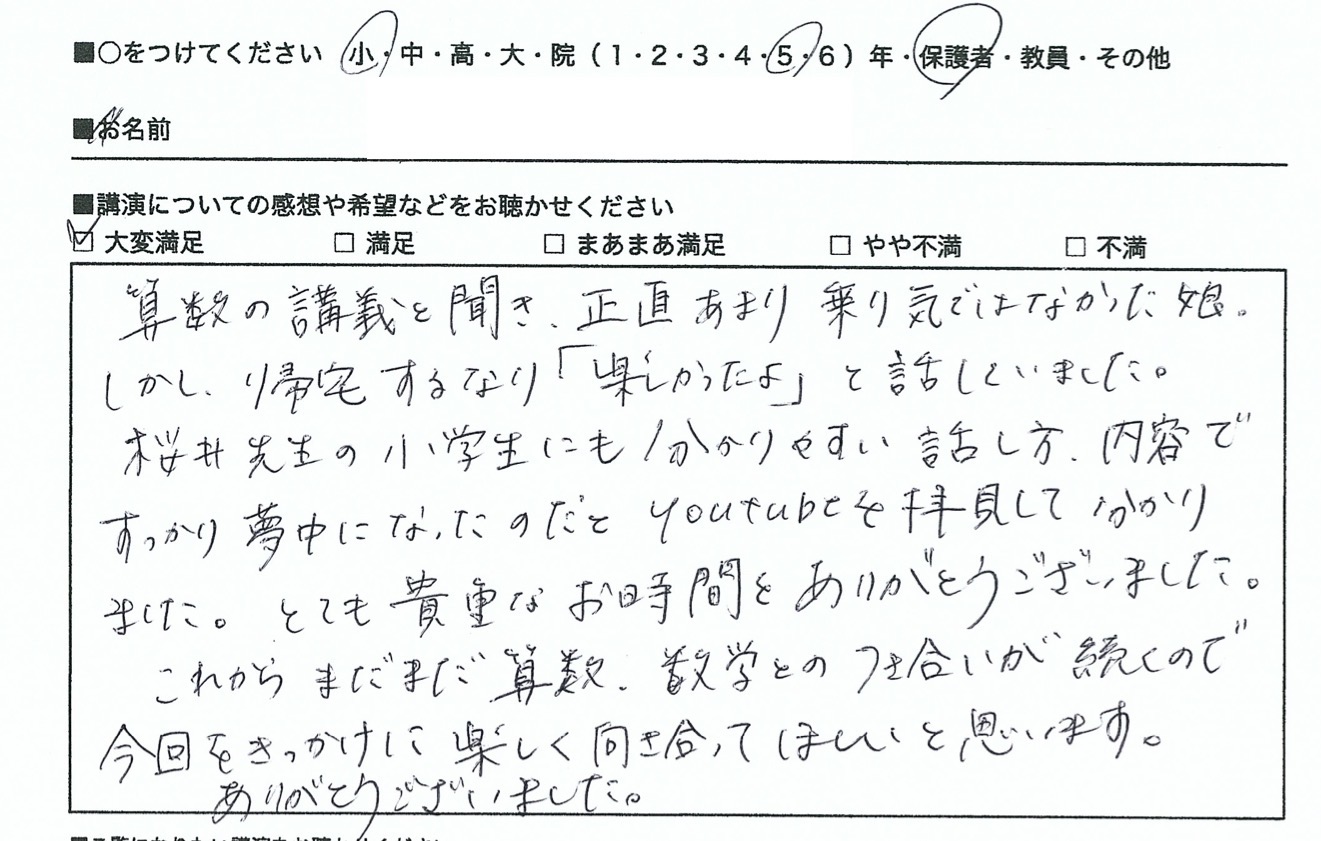 ■○をつけてください 小・中・高・大・院（1・2・3・4・5・6）年・保護者・教員・その他
■お名前
■講演についての感想や希望などをお聴かせください
☑ 大変満足 □ 満足 □ まあまあ満足 □ やや不満 □ 不満
算数の講義と聞き、正直あまり乗り気ではなかった娘。
しかし、帰宅するなり「楽しかったよ」と話していました。
桜井先生の小学生にも分かりやすい話し方、内容で
すっかり夢中になったのだとyoutubeを拝見して分かり
ました。とても貴重なお時間をありがとうございました。
これからまだまだ算数、数学とのつき合いが続くので
今回をきっかけに楽しく向き合ってほしいと思います。
ありがとうございました。